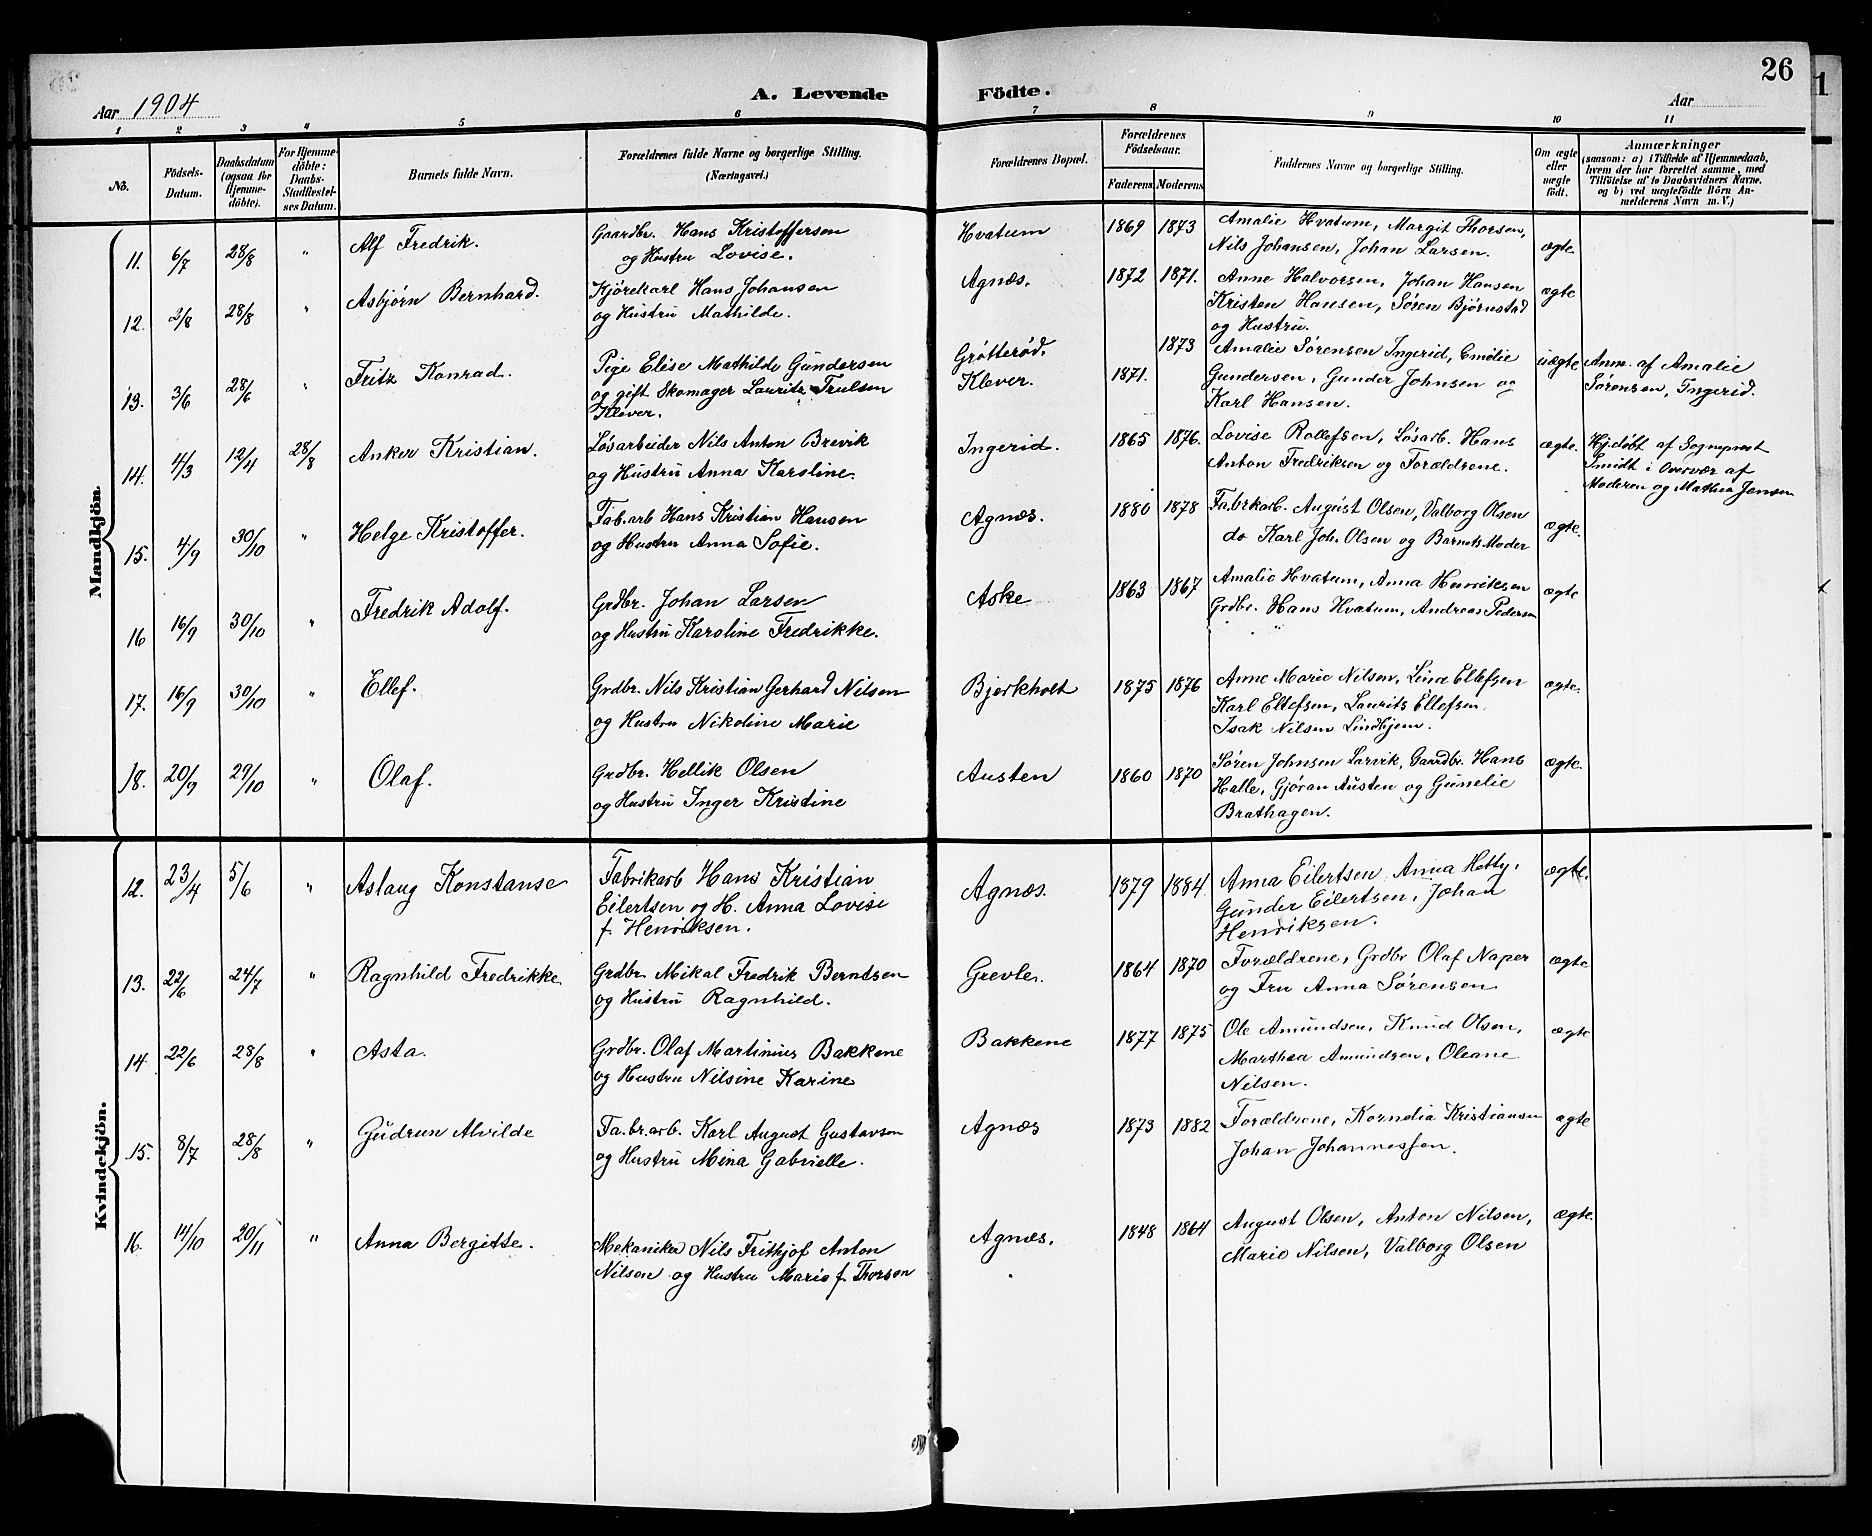 Aar 1904
A. Levende Födte.
Aar
26
1 2 3 4 5 6 7 8 9 10 11
No.
Födsels-
Datum.
Daabsdatum
(ogsaa for
Hjemme-
döbte).
For Hjemme-
döbte:
Daabs-
Stadfæstel-
ses Datum.
Barnets fulde Navn.
Forældrenes fulde Navne og borgerlige Stilling.
(Næringsvei.)
Forældrenes Bopæl.
Forældrenes
Födselsaar.
Faderens Moderens
Faddernes Navne og borgerlige Stilling.
Om ægte
eller
uægte
födt.
Anmærkninger
(saasom: a) i Tilfælde af Hjemmedaab,
hvem der har forrettet samme, med
Tilföielse af to Daabsvidners Navne.
og b) ved uægtefödte Börn An-
melderens Navn m. V.)
Mandkjön.
11. 6/7 28/8 " Alf Fredrik. Gaardbr. Hans Kristoffersen Hvatum 1869 1873 Amalie Hvatum, Margit Thorsen,
og Hustru Lovise. Nils Johansen, Johan Larsen. ægte
12. 2/8 28/8 " Asbjørn Bernhard. Kjørekarl Hans Johansen Agnæs. 1872 1871. Anne Halvorsen, Johan Hansen ægte
og Hustru Mathilde. Kristen Hansen, Søren Bjørnstad
og Hustru.
13. 3/6 28/6 " Fritz Konrad. Pige Elise Mathilde Gundersen Grøtterød. 1873 Amalie Sørensen Ingerid, Emilie uægte Anm. af Amalie
og gift Skomager Lauritz Trulsen Klever. 1871. Gundersen, Gunder Johnsen og Sørensen, Ingerid.
Klever. Karl Hansen.
14. 4/3 12/4 28/8 Anker Kristian. Løsarbeider Nils Anton Brevik Ingerid. 1865 1876. Lovise Rollefsen, Løsarb. Hans ægte. Hj.døbt af Sogneprest
og Hustru Anna Karoline. Anton Fredriksen og Forældrene. Smidt i Overvær af
Moderen og Mathea Jensen
15. 4/9 30/10 " Helge Kristoffer. Fab.arb Hans Kristian Hansen Agnæs. 1880 1878 Fabrkarb. August Olsen, Valborg Olsen ægte.
og Hustru Anna Sofie. do Karl Joh. Olsen og Barnets Moder
16 16/9 30/10 " Fredrik Adolf. Grdbr. Johan Larsen Aske 1863 1867 Amalie Hvatum, Anna Henriksen ægte
og Hustru Karoline Fredrikke. Grdbr. Hans Hvatum, Andreas Pedersen
17. 16/9 30/10 " Ellef. Grdbr. Nils Kristian Gerhard Nilsen Bjerkholt 1875 1876 Anne Marie Nilsen, Lina Ellefsen ægte.
og Hustru Nikoline Marie Karl Ellefsen, Laurits Ellefsen.
Isak Nilsen Lindhjem.
18. 20/9 29/10 " Olaf. Grdbr. Hellik Olsen Austen 1860 1870 Søren Johnsen Larvik, Gaardbr. Hans ægte.
og Hustru Inger Kristine Halle, Gjøran Austen og Gunelie
Brathagen.
Kvindekjön.
12. 23/4 5/6 " Aslaug Konstanse Fabrikarb Hans Kristian Agnæs. 1879 1884 Anna Eilertsen Anna Hetty, ægte.
Eilertsen og H. Anna Lovise Gunder Eilertsen, Johan
f. Henriksen. Henriksen.
13. 22/6 24/7 " Ragnhild Fredrikke Grdbr. Mikal Fredrik Berntsen Grevle. 1864 1870 Forældrene, Grdbr Olaf Naper ægte
og Hustru Ragnhild. og Fru Anna Sørensen
14. 22/6 28/8 " Asta. Grdbr. Olaf Martinius Bakkene Bakkene 1877 1875 Ole Amundsen, Knud Olsen, ægte
og Hustru Nilsine Karine Marthea Amundsen, Oleane
Nilsen.
15. 8/7 28/8 " Gudrun Alvilde Fa.br.arb. Karl August Gustavsen Agnæs 1873 1882 Forældrene, Kornelia Kristiansen ægte
og Hustru Mina Gabrielle. Johan Johannessen.
16. 14/10 20/11 " Anna Bergitte. Mekaniker Nils Frithjof Anton Agnæs. 1848 1864 August Olsen, Anton Nilsen, ægte.
Nilsen og Hustru Marie f. Thorsen Marie Nilsen, Valborg Olsen